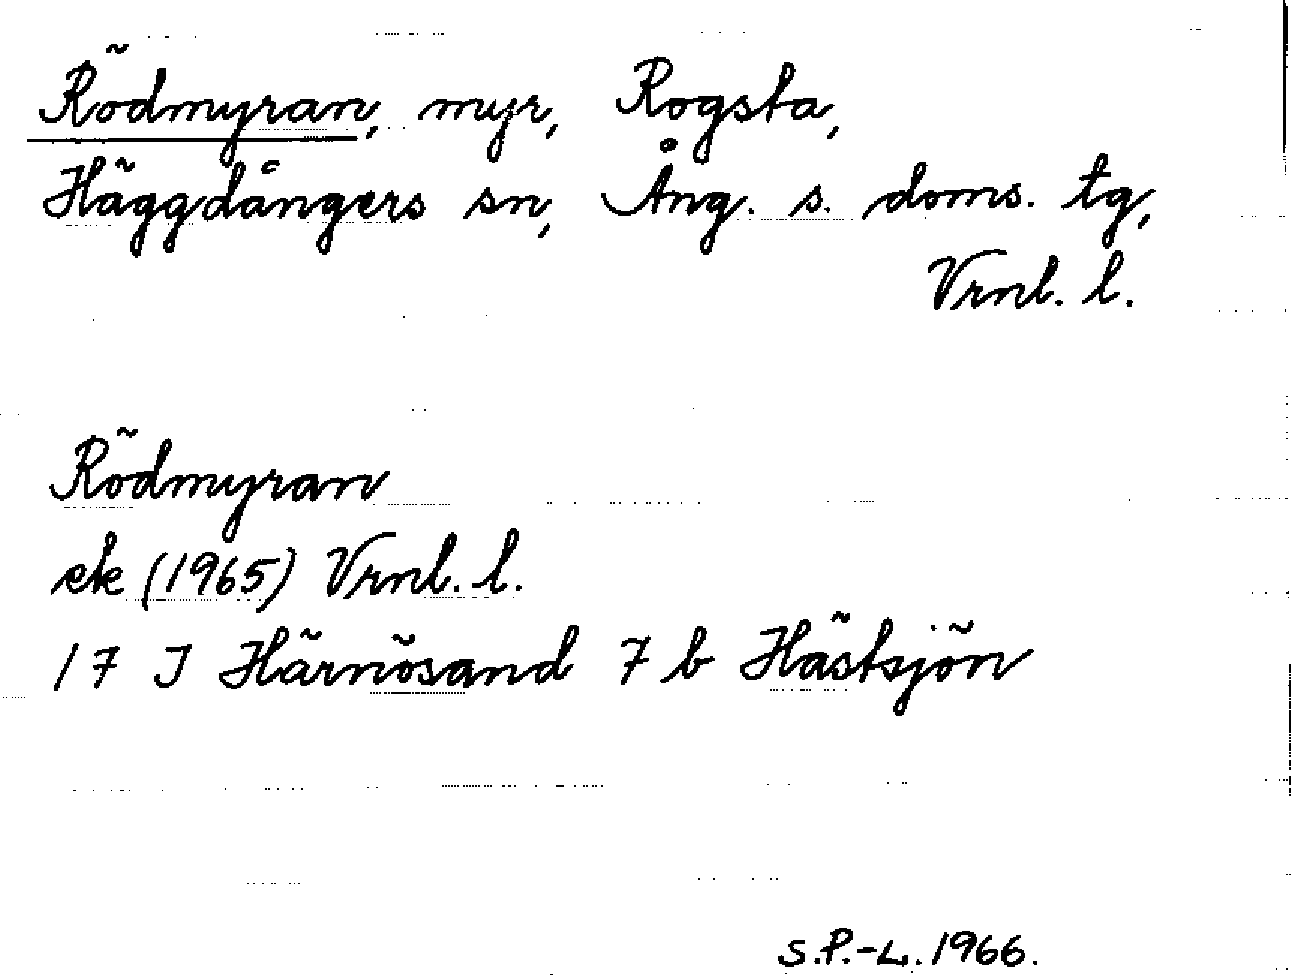 Rödmyran, myr, Rogsta,
Häggdångers sn, Ång. s. doms. tg,
Vrnl. l.
Rödmyran
ek (1965) Vrnl. l.
17 J Härnösand 7 b Hästsjön
S.P.-L. 1966.